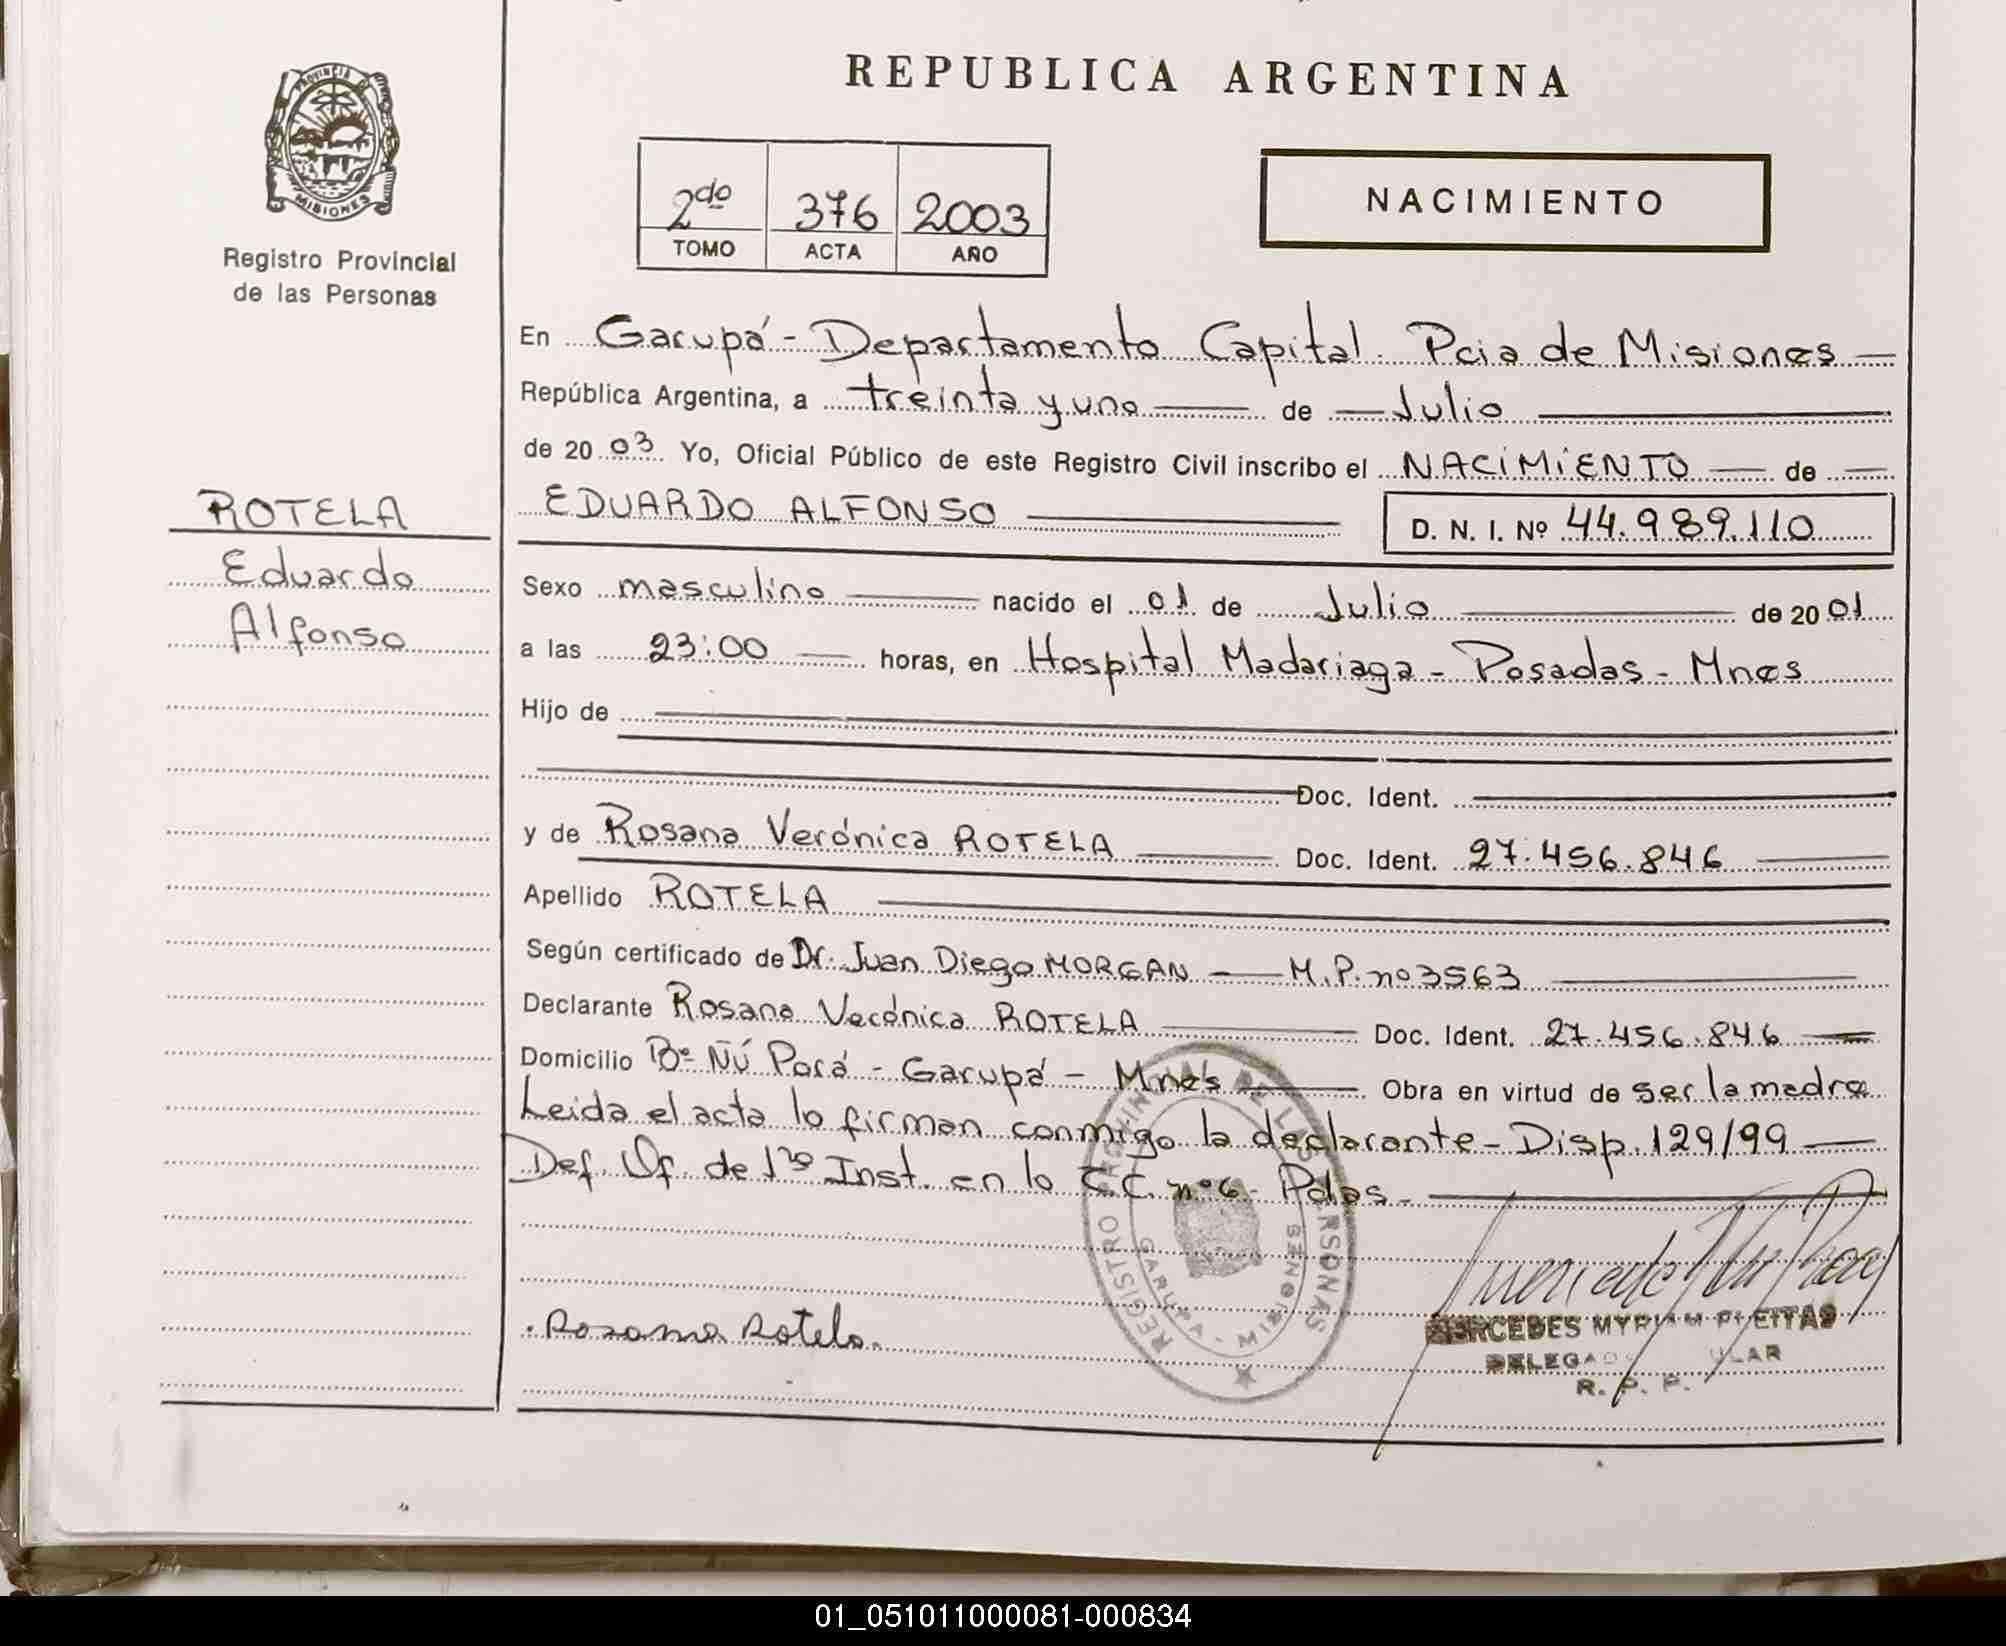 REPUBLICA ARGENTINA
PROVINCIA DE
MISIONES
Registro Provincial
de las Personas
2do 376 2003
TOMO ACTA AÑO
NACIMIENTO
En Garupá - Departamento Capital. Pcia de Misiones
República Argentina, a treinta y uno de Julio
de 2003 Yo, Oficial Público de este Registro Civil inscribo el NACIMIENTO de
ROTELA
Eduardo
Alfonso
EDUARDO ALFONSO D. N. I. Nº 44.989.110
Sexo masculino nacido el 01 de Julio de 2001
a las 23:00 horas, en Hospital Madariaga - Posadas - Mnes
Hijo de
Doc. Ident.
y de Rosana Verónica ROTELA Doc. Ident. 27.456.846
Apellido ROTELA
Según certificado de Dr. Juan Diego MORGAN M.P. nº 3563
Declarante Rosana Verónica ROTELA Doc. Ident. 27.456.846
Domicilio Bº Ñú Porá - Garupá - Mnes Obra en virtud de ser la madre
Leida el acta lo firman conmigo la declarante - Disp. 129/99
Def. Of. de 1ra Inst. en lo C.C. nº 6 - Pdas.
REGISTRO PROVINCIAL DE LAS PERSONAS
GARUPA - MISIONES
Rosana Rotela.
MERCEDES MYRIAM FLEITAS
DELEGADA TITULAR
R. P. P.
01_051011000081-000834